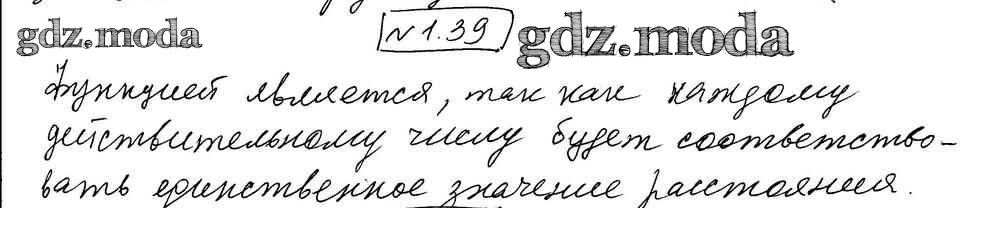 gdz.moda №1.39 gdz.moda
Функцией является, так как каждому
действительному числу будет соответство-
вать единственное значение расстояния.